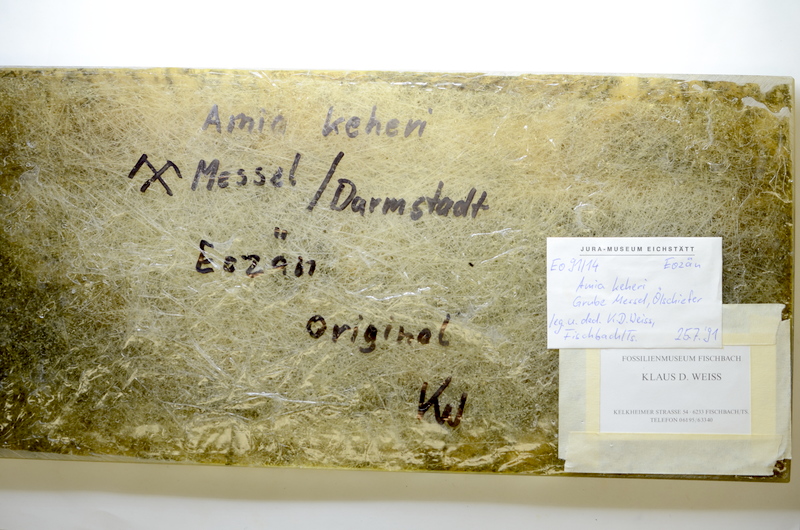 Amia keheri
Messel / Darmstadt
Eozän
Original
KW
JURA-MUSEUM EICHSTÄTT
Eo 91/14 Eozän
Amia keheri
Grube Messel, Ölschiefer
leg. u. ded. K.D. Weiss,
Fischbach/Ts. 25.7.91
FOSSILIENMUSEUM FISCHBACH
KLAUS D. WEISS
KELKHEIMER STRASSE 58 · 6233 FISCHBACH/TS
TELEFON